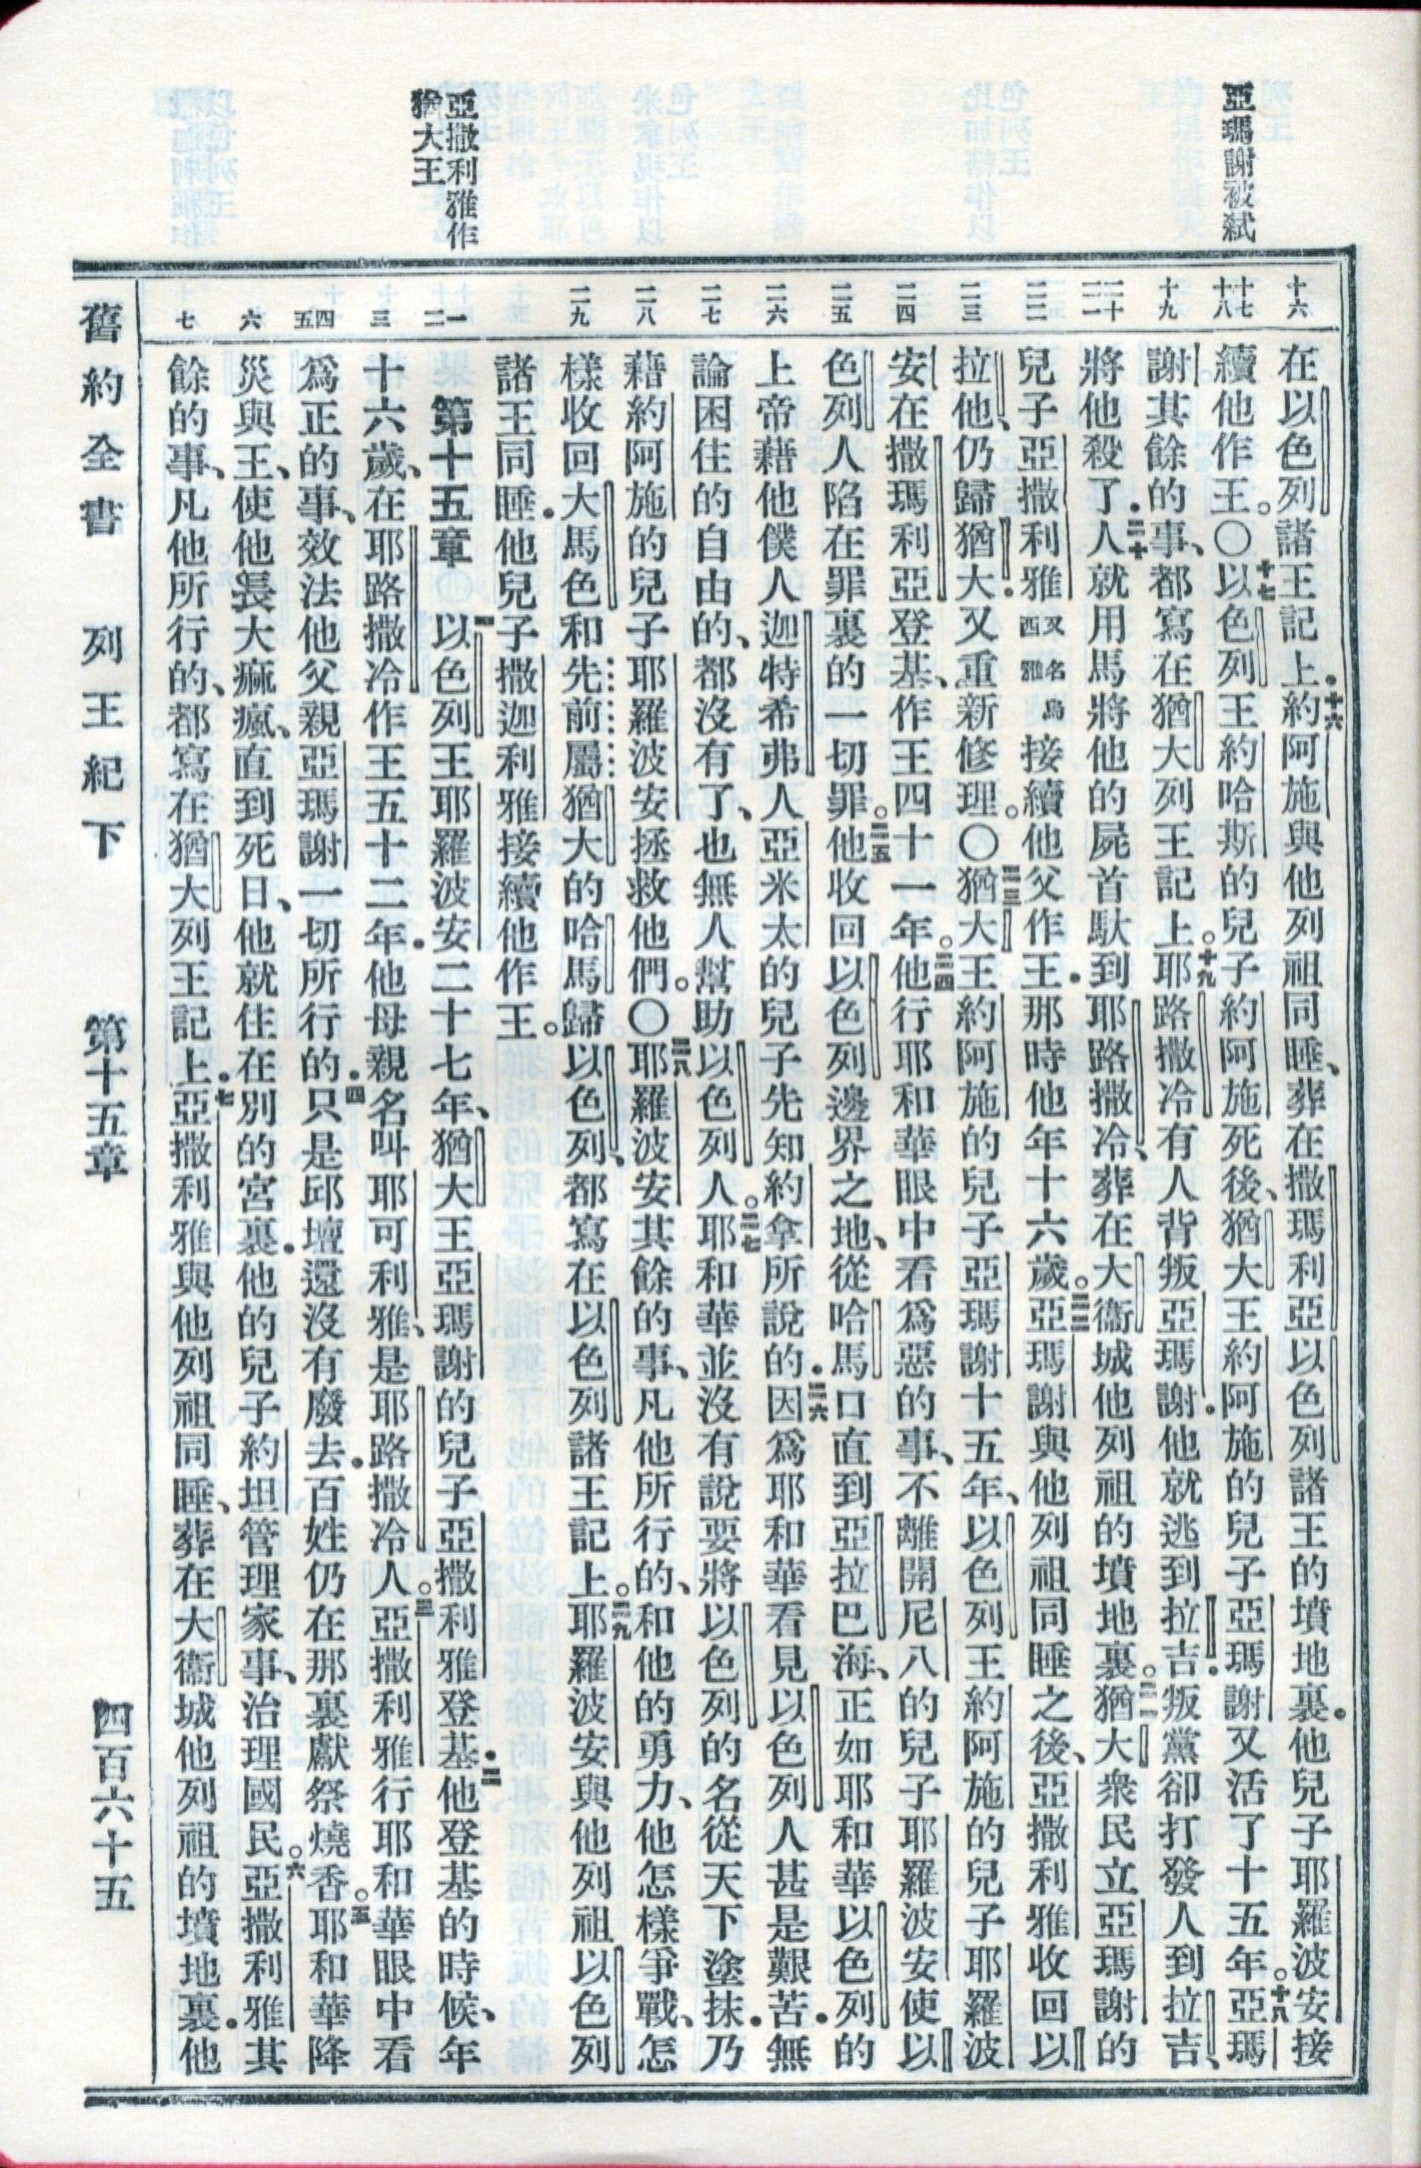 亞瑪謝被弒
亞撒利雅作
猶大王
十六
十七
十八
十九
二十
二一
二二
二三
二四
二五
二六
二七
二八
二九
一
二
三
四
五
六
七
在以色列諸王記上．十六約阿施與他列祖同睡、葬在撒瑪利亞以色列諸王的墳地裏．他兒子耶羅波安接
續他作王。〇十七以色列王約哈斯的兒子約阿施死後、猶大王約阿施的兒子亞瑪謝又活了十五年。十八亞瑪
謝其餘的事、都寫在猶大列王記上。十九耶路撒冷有人背叛亞瑪謝．他就逃到拉吉．叛黨卻打發人到拉吉、
將他殺了．二十人就用馬將他的屍首馱到耶路撒冷、葬在大衞城他列祖的墳地裏。二一猶大衆民立亞瑪謝的
兒子亞撒利雅又名烏西雅接續他父作王．那時他年十六歲。二二亞瑪謝與他列祖同睡之後、亞撒利雅收回以
拉他、仍歸猶大．又重新修理。〇二三猶大王約阿施的兒子亞瑪謝十五年、以色列王約阿施的兒子耶羅波
安在撒瑪利亞登基、作王四十一年。二四他行耶和華眼中看爲惡的事、不離開尼八的兒子耶羅波安使以
色列人陷在罪裏的一切罪。二五他收回以色列邊界之地、從哈馬口直到亞拉巴海、正如耶和華以色列的
上帝藉他僕人迦特希弗人亞米太的兒子先知約拿所說的．二六因爲耶和華看見以色列人甚是艱苦．無
論困住的自由的、都沒有了、也無人幫助以色列人。二七耶和華並沒有說要將以色列的名從天下塗抹．乃
藉約阿施的兒子耶羅波安拯救他們。〇二八耶羅波安其餘的事、凡他所行的、和他的勇力、他怎樣爭戰、怎
樣收回大馬色和先前屬猶大的哈馬歸以色列、都寫在以色列諸王記上。二九耶羅波安與他列祖以色列
諸王同睡．他兒子撒迦利雅接續他作王。
第十五章　一以色列王耶羅波安二十七年、猶大王亞瑪謝的兒子亞撒利雅登基．二他登基的時候、年
十六歲、在耶路撒冷作王五十二年．他母親名叫耶可利雅、是耶路撒冷人。三亞撒利雅行耶和華眼中看
爲正的事、效法他父親亞瑪謝一切所行的．四只是邱壇還沒有廢去．百姓仍在那裏獻祭燒香。五耶和華降
災與王、使他長大痲瘋、直到死日、他就住在別的宮裏．他的兒子約坦管理家事、治理國民。六亞撒利雅其
餘的事、凡他所行的、都寫在猶大列王記上．七亞撒利雅與他列祖同睡、葬在大衞城他列祖的墳地裏．他
舊約全書　列王紀下　第十五章　四百六十五